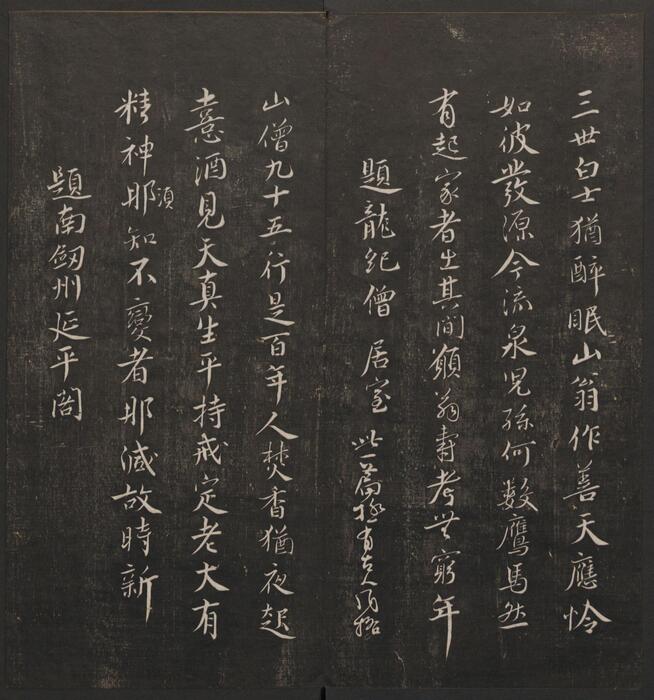 三世白士猶醉眠山翁作善天應怜
如彼發源今流泉兒孫何數鷹馬然
有起家者出其間願翁壽考無窮年
題龍紀僧居室 此一篇極有古人風格
山僧九十五行是百年人焚香猶夜起
憙酒見天真生平持戒定老大有
精神那須知不變者那減故時新
題南劒州延平閣